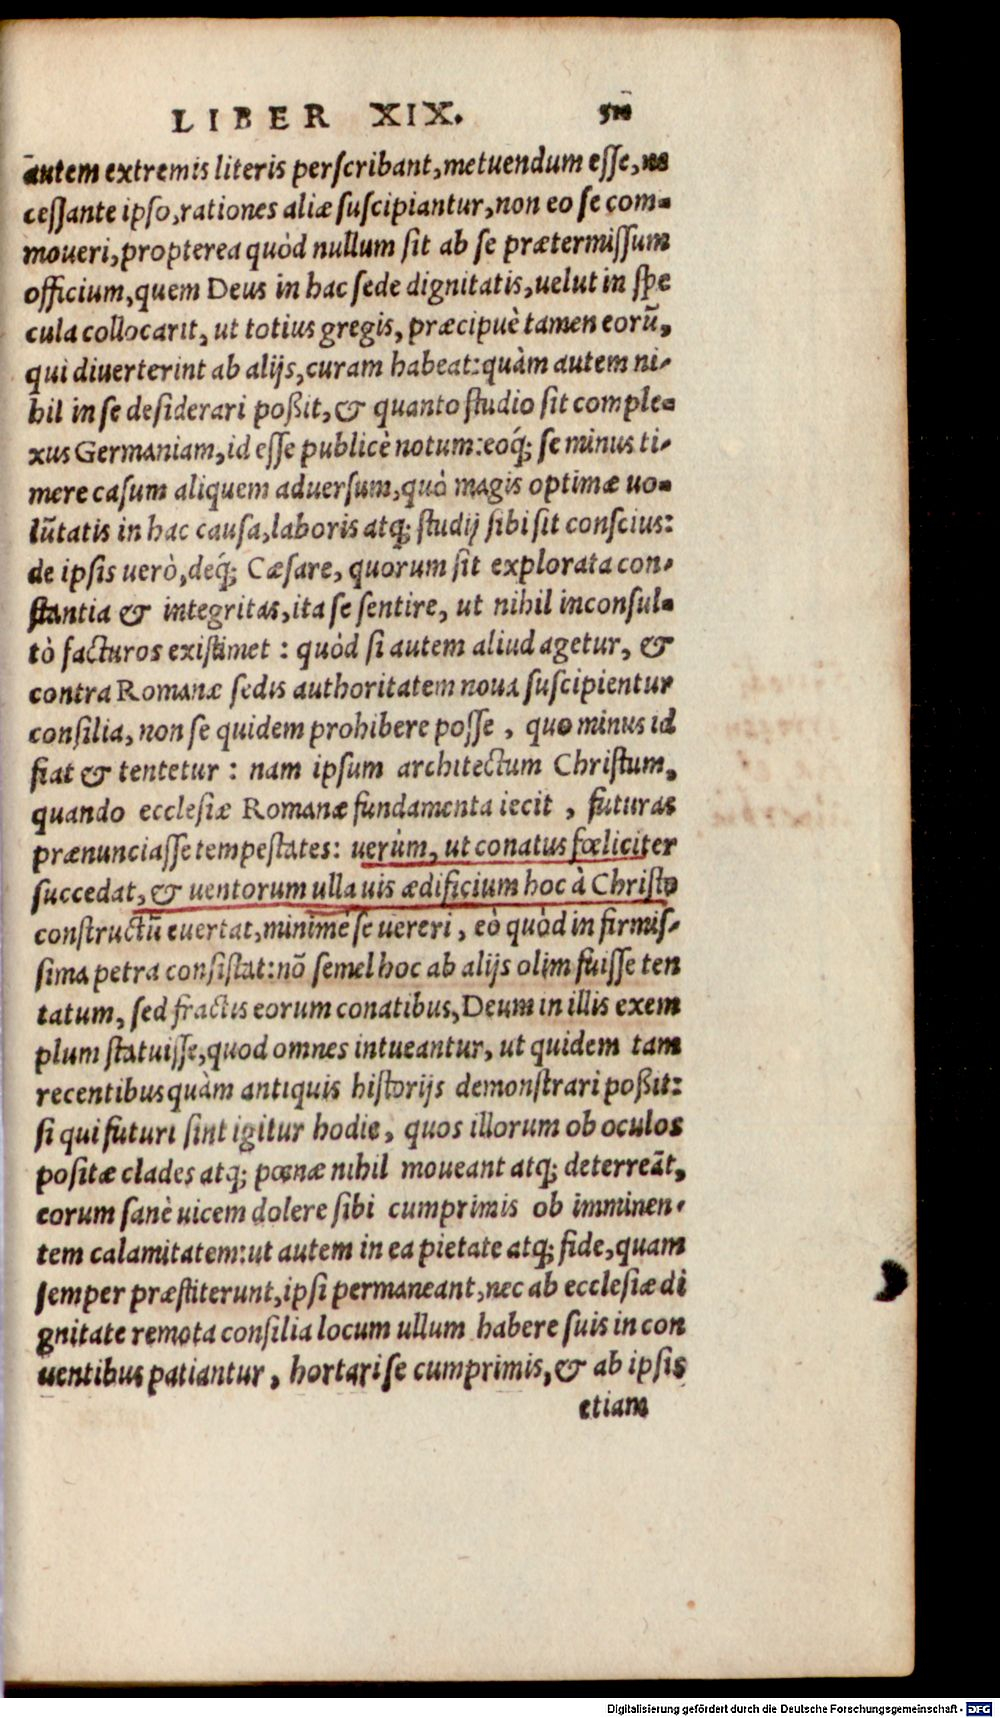 LIBER XIX.
autem extremis literis perscribant, metuendum esse, ne
cessante ipso, rationes aliæ suscipiantur, non eo se com-
moueri, propterea quòd nullum sit ab se prætermissum
officium, quem Deus in hac sede dignitatis, uelut in spe
cula collocarit, ut totius gregis, præcipuè tamen eorū,
qui diuerterint ab alijs, curam habeat: quàm autem ni-
hil in se desiderari poßit, & quanto studio sit comple-
xus Germaniam, id esse publicè notum: eoq́; se minus ti-
mere casum aliquem aduersum, quò magis optimæ uo-
lūtatis in hac causa, laboris atq; studij sibi sit conscius:
de ipsis uerò, deq́; Cæsare, quorum sit explorata con-
stantia & integritas, ita se sentire, ut nihil inconsul-
tò facturos existimet : quòd si autem aliud agetur, &
contra Romanæ sedis authoritatem noua suscipientur
consilia, non se quidem prohibere posse , quo minus id
fiat & tentetur : nam ipsum architectum Christum,
quando ecclesiæ Romanæ fundamenta iecit , futuras
prænunciasse tempestates: uerùm, ut conatus fœliciter
succedat, & uentorum ulla uis ædificium hoc à Christo
constructū euertat, minimè se uereri , eò quòd in firmis-
sima petra consistat: nō semel hoc ab alijs olim fuisse ten
tatum, sed fractis eorum conatibus, Deum in illis exem
plum statuisse, quod omnes intueantur, ut quidem tam
recentibus quàm antiquis historijs demonstrari poßit:
si qui futuri sint igitur hodie, quos illorum ob oculos
positæ clades atq; pœnæ nihil moueant atq; deterreāt,
eorum sanè uicem dolere sibi cumprimis ob imminen-
tem calamitatem: ut autem in ea pietate atq; fide, quam
semper præstiterunt, ipsi permaneant, nec ab ecclesiæ di
gnitate remota consilia locum ullum habere suis in con
uentibus patiantur , hortari se cumprimis, & ab ipsis
etiam
Digitalisierung gefördert durch die Deutsche Forschungsgemeinschaft - DFG